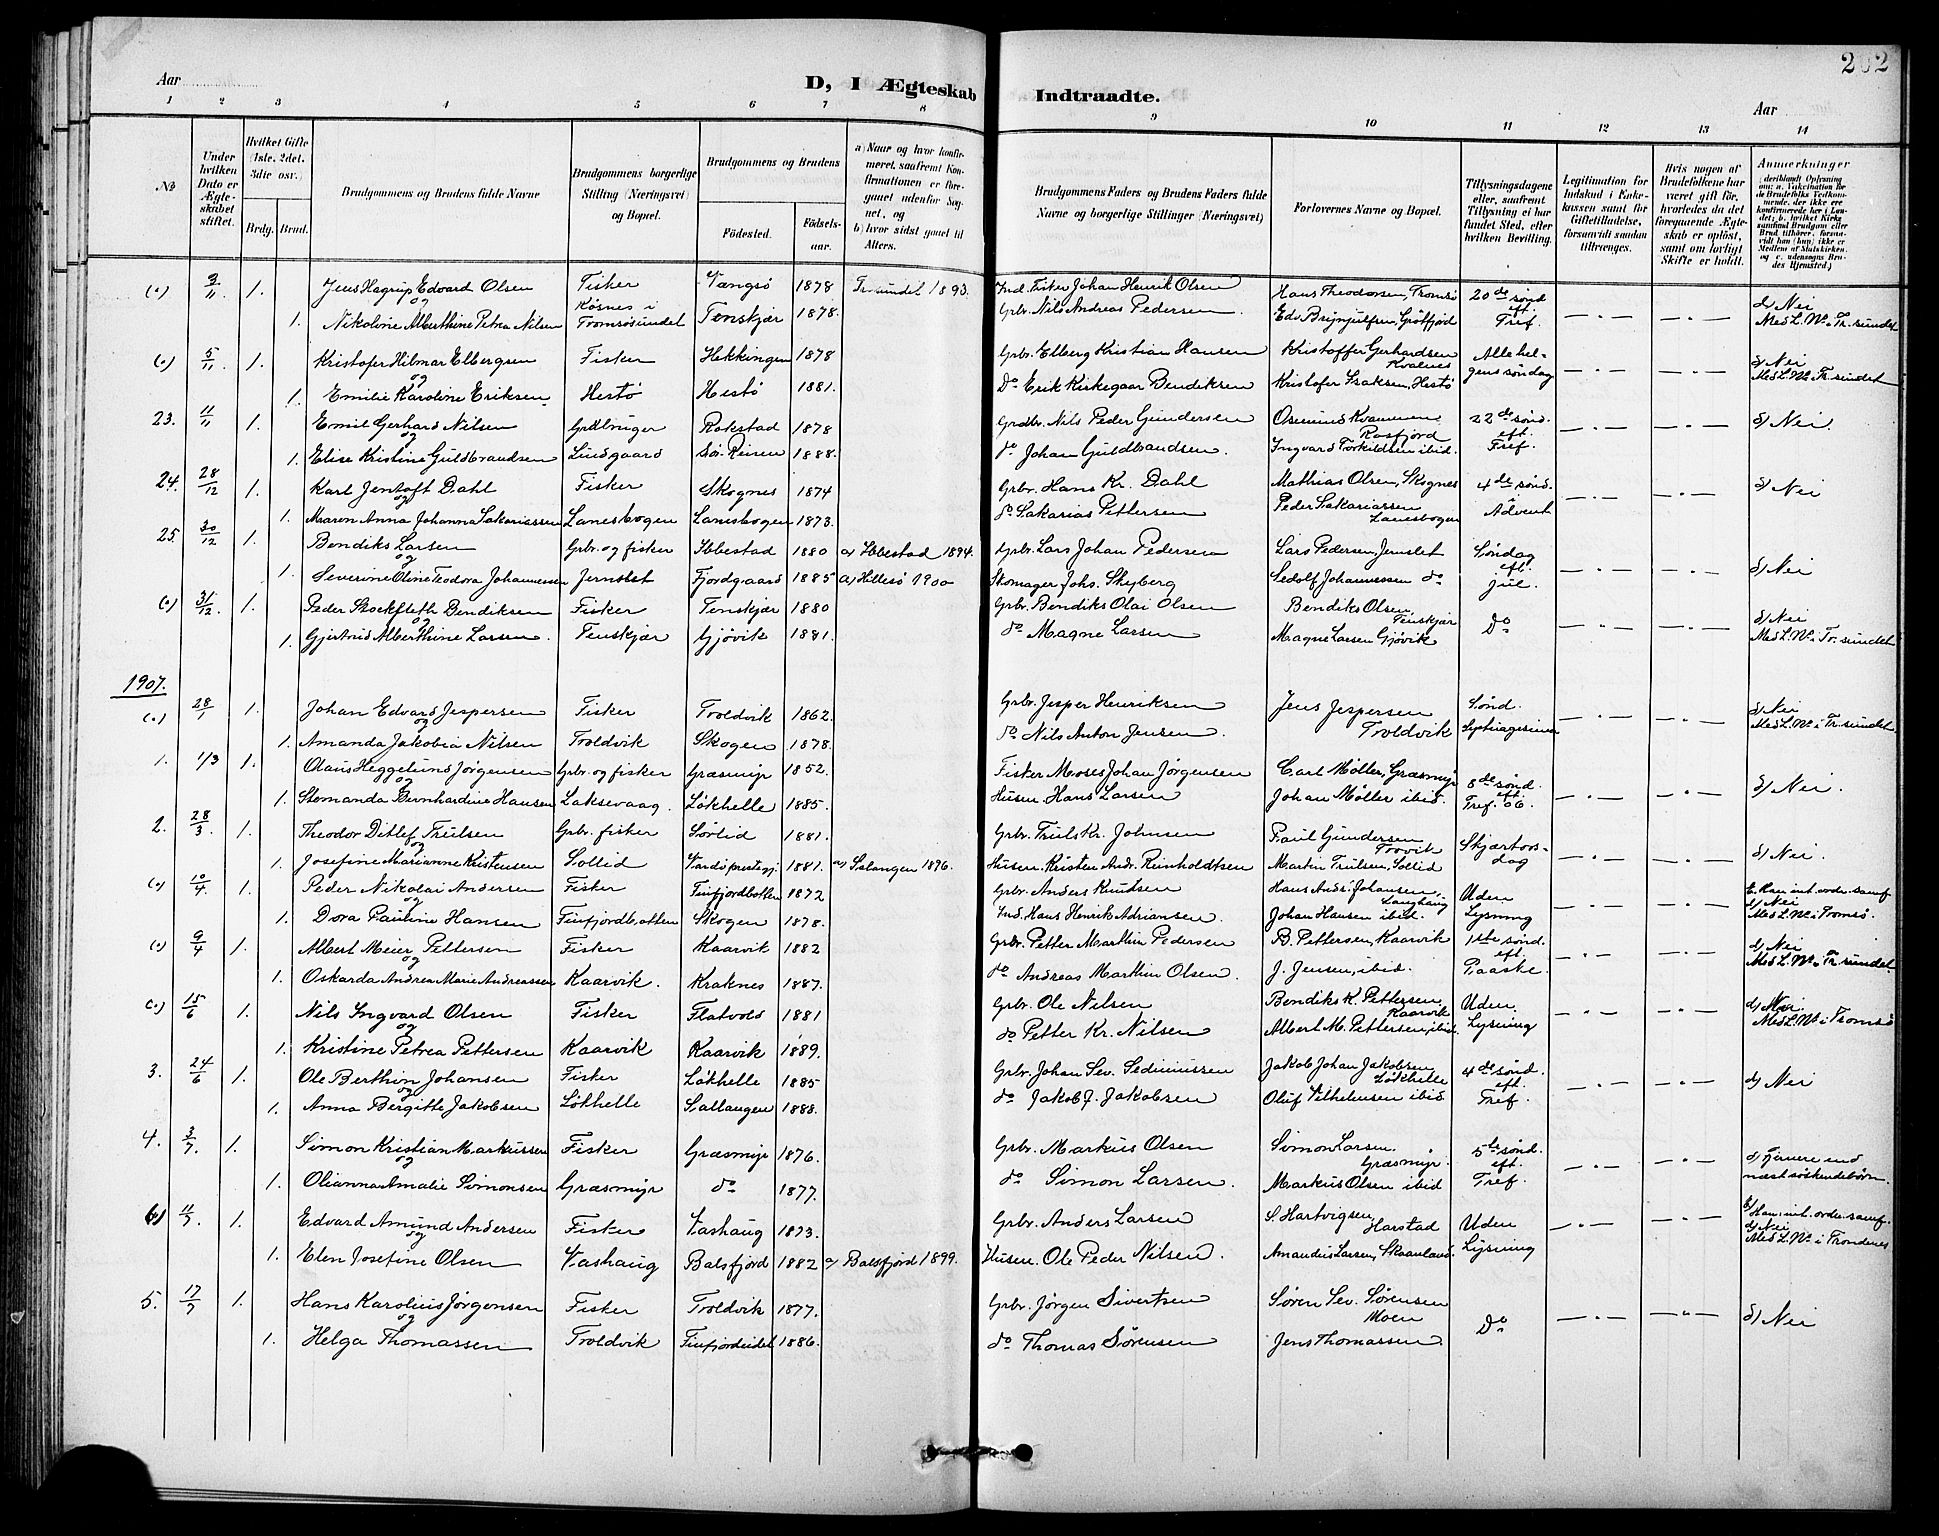 202
Aar
D, I Ægteskab Indtraadte.
Aar
1 2 3 4 5 6 7 8 9 10 11 12 13 14
No
Under hvilken Dato er Ægteskabet stiftet.
Hvilket Gifte (1ste, 2det, 3die osv.)
Brdg. Brud.
Brudgommens og Brudens fulde Navne
Brudgommens borgerlige Stilling (Næringsvei) og Bopæl.
Brudgommens og Brudens
Fødested.
Fødselsaar.
a) Naar og hvor konfirmeret, saafremt Konfirmationen er foregaaet udenfor Sognet, og
b) hvor sidst gaaet til Alters.
Brudgommens Faders og Brudens Faders fulde Navne og borgerlige Stillinger (Næringsvei)
Forlovernes Navne og Bopæl.
Tillysningsdagene eller, saafremt Tillysning ei har fundet Sted, efter hvilken Bevilling.
Legitimation for Indskud i Enkekassen samt for Giftetilladelse, forsaavidt saadan tiltrænges.
Hvis nogen af Brudefolkene har været gift før, hvorledes da det foregaaende Ægteskab er opløst, samt om lovligt Skifte er holdt.
Anmerkninger
(0) 3/11 1. Jens Hagrup Edvard Olsen Fisker Vængsø 1878 Tr.sundet 1893. Ind. Fisker Johan Henrik Olsen Hans Theodorsen, Tromsø 20de sønd
og Kosnes i eft. d) Nei
1. Nikoline Alberthine Petra Nilsen Tromsøsundet Tenskjær 1878. Grbr. Nils Andreas Pedersen. Edv. Brynjulfsen, Grötfjord Tref. Med L.N. i Tr.sundet
(0) 5/11 1. Kristofer Hilmar Elbergsen Fisker Hekkingen 1878 Grbr. Elberg Kristian Hansen Kristoffer Gerhardsen Allehel-
og Kvalnes d) Nei
1. Emilie Karoline Eriksen Hestø Hestö 1881. Do Erik Kirkegaar Bendiksen Kristofer Isaksen, Hestö gens söndag Med L.N. i Tr.sundet
23. 11/11 1. Emil Gerhard Nilsen Grdbruger Rakstad 1878 Grdbr. Nils Peder Gundersen Osmund Kvammen 22de sønd. d) Nei.
og Rosfjord eft.
1. Elise Kristine Guldbrandsen Lundgaard Sör. Reinen 1888. do Johan Guldbrandsen. Ingvard Torkildsen ibid. Tref.
24. 28/12 1. Karl Jentoft Dahl Fisker Skognes 1874 Grbr. Hans Kr. Dahl Mathias Olsen, Skognes 4de sønd. d) Nei
og i
1. Maren Anna Johanna Sakariassen Lanesbogen Lanesbogen 1873. do Sakarias Pettersen Peder Sakariassen Lanesbogen Advent
25. 30/12 1. Bendiks Larsen Grbr. og fisker Ibbestad 1880 a) Ibbestad 1894. Grbr. Lars Johan Pedersen Lars Pedersen, Jernslet Söndag
og eft. d) Nei
1. Severine Oline Teodora Johannessen Jernslet Fjordgaard 1885 a) Hillesö 1900 Skomager Johs. Skyberg Sedolf Johannessen do jul.
(0) 31/12 1. Peder Stockfleth Bendiksen Fisker Tenskjær 1880 Grbr. Bendiks Olai Olsen Bendiks Olsen, Tenskjær Do d) Nei
og
1. Gjertrud Alberthine Larsen. Tenskjær Gjövik 1881. do Magne Larsen Magne Larsen Gjövik Med L.N. i Tr.sundet
1907.
(0) 28/1 1. Johan Edvard Jespersen Fisker Troldvik 1862. Grbr. Jesper Henriksen Jens Jespersen Sønd. d) Nei
og Troldvik Med L.N. i Tr.sundet
1. Amanda Jakobia Nilsen Troldvik Skogen 1878. do Nils Anton Jensen.
1. 1/3 1. Olaus Heggelund Jørgensen Grbr. og fisker Græsmyr 1852. Fisker Moses Johan Jørgensen Carl Møller, Græsmyr 8de sønd. d) Nei.
og eft.
1. Stomanda Bernhardine Hansen Laksevaag. Løkhelle 1885. Husm. Hans Larsen Johan Møller ibid. Tref. 06.
2. 28/3 1. Theodor Ditlef Trulsen Grbr. fisker Sörlid 1881. Grbr. Truls Kr. Johnsen Paul Gundersen Skjærtors-
og Trovik dag d) Nei.
1. Josefine Marianne Kristensen Sollid 1881. a) Salangen 1896. Husm. Kristen Andr. Reinholdtsen Martin Trulsen, Sollid
(0) 10/4 1. Peder Nikolai Andersen Fisker Finfjordbotten 1872 Grbr. Anders Knudsen Hans Andr. Johansen, Uden
og Langhaug d) Nei
1. Dora Pauline Hansen Finfjordbotten Skogen 1878. Ind. Hans Henrik Adriansen. Johan Hansen ibid. Lysning Med L.N. i Tromsø.
(0) 9/4 1. Albert Meier Pettersen Fisker Kaarvik 1882 Grbr. Petter Marthin Pedersen B. Pettersen, Kaarvik 1ste sønd. d) Nei
og eft. Med L.N. i Tr.sundet
1. Oskarda Andrea Marie Andreassen Kaarvik. Kraknes 1887. do Andreas Marthin Olsen. J. Jensen, ibid. Paaske.
(0) 15/6 1. Nils Ingvard Olsen Fisker Flatvold 1881 Grbr. Ole Nilsen Bendiks K. Pettersen, Uden d) Nei.
og Kaarvik Med L.N. i Tromsø
1. Kristine Petrea Pettersen Kaarvik Kaarvik 1889. do Petter Kr. Nilsen Albert M. Pettersen, ibid. Lysning
3. 24/6 1. Ole Berthin Johansen Fisker Løkhelle 1885 Grbr. Johan Sev. Sedeniussen Jakob Johan Jakobsen 4de sønd.
og Løkhelle eft. d) Nei
1. Anna Bergitte Jakobsen Løkhelle Sallangen 1888. do Jakob J. Jakobsen Oluf Vilhelmsen ibid Tref.
4. 3/7 1. Simon Kristian Markussen Fisker Græsmyr 1876. Grbr. Markus Olsen Simon Larsen 5te sønd.
og Græsmyr. eft. d) Fjernere end
1. Olianna Amalie Simonsen Græsmyr do 1877. do Simon Larsen. Markus Olsen ibid Tref. næstsöskendebörn.
(0) 11/7. 1. Edvard Amund Andersen Fisker Vashaug 1873. Grbr. Anders Larsen S. Hartvigsen, Harstad Uden
og d) Nei
1. Elen Josefine Olsen Vashaug Balsfjord 1882 a) Balsfjord 1899. Husm. Ole Peder Nilsen. Amandus Larsen, Skaanland. Lysning Med L.N. i Trondenes
5. 17/7 1. Hans Karolius Jørgensen Fisker Troldvik 1877. Grbr. Jørgen Sivertsen Søren Sev. Sørensen Moen Do d) Nei
og
1. Helga Thomassen Troldvik Finfjordeidet 1886. do Thomas Sørensen Jens Thomassen